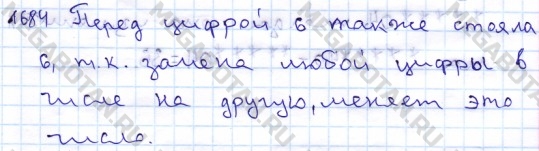 1684 Перед цифрой 6 также стояла
6, т.к. замена любой цифры в
числе на другую, меняет это
число.